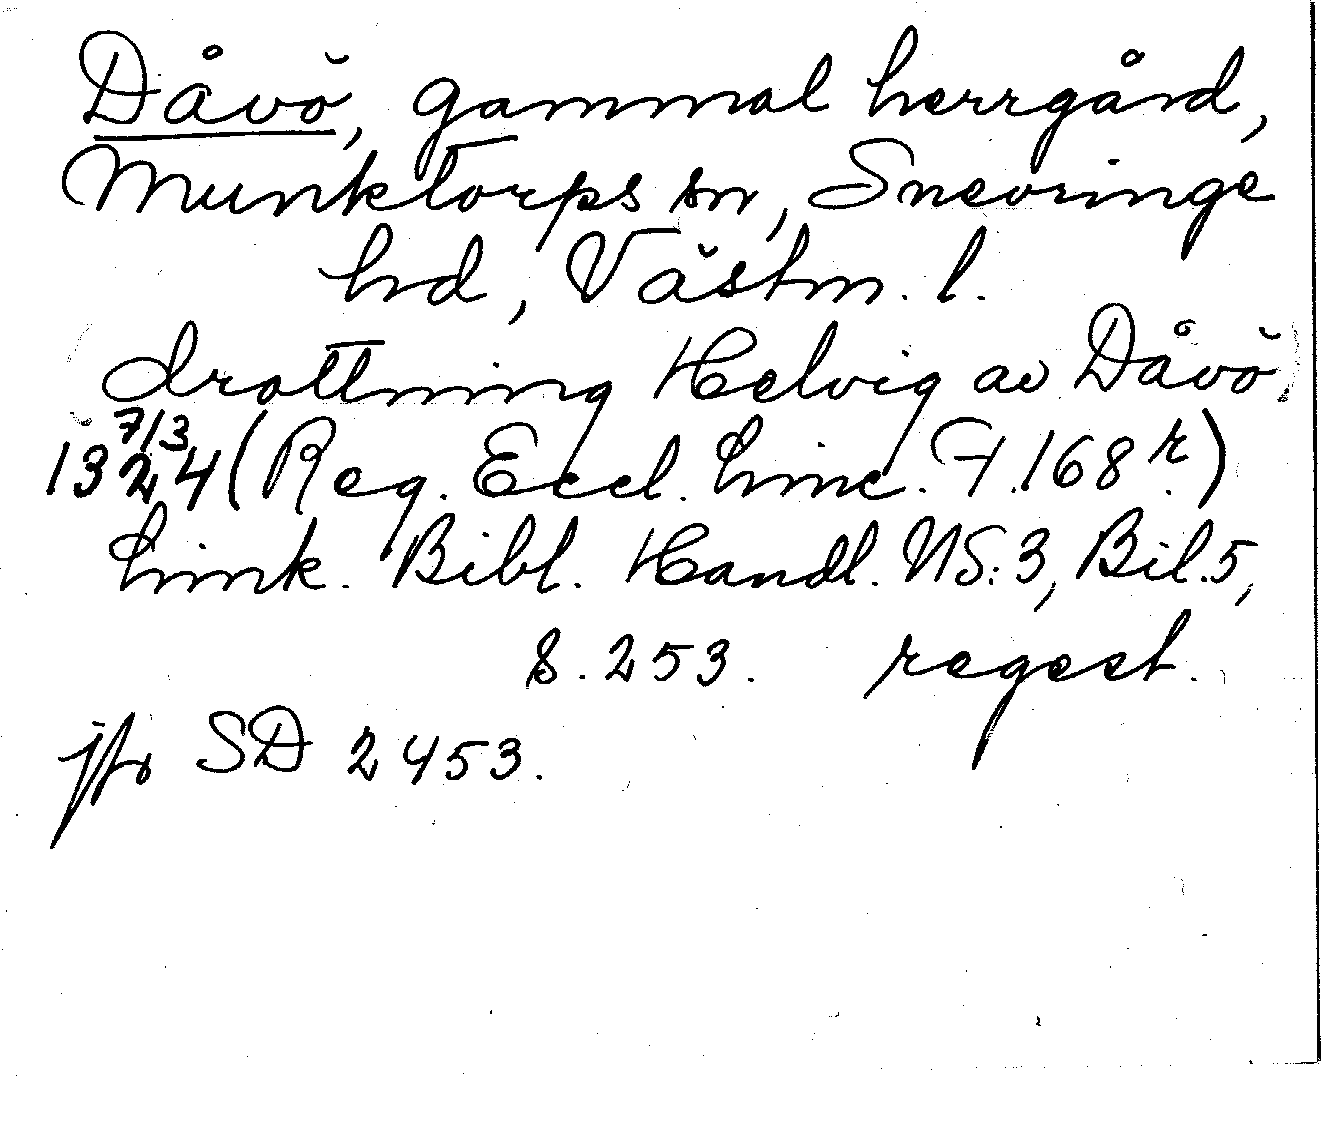 Dåvö, gammal herrgård,
Munktorps sn, Snevringe
hd, Västm. l.
(drottning Helvig av Dåvö)
1324 7/3 (Reg. Eccl. Linc. F. 168 r.)
Link. Bibl. Handl. NS: 3, Bil. 5,
S. 253. regest.
jfr SD 2453.